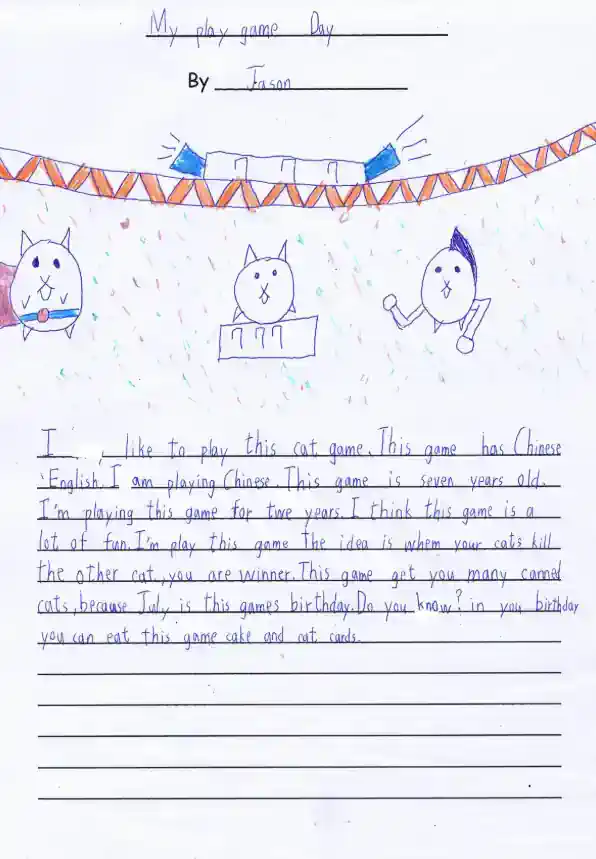 My play game Day
By Jason
7 7 7
777
I like to play this cat game. This game has Chinese
English. I am playing Chinese. This game is seven years old.
I'm playing this game for twe years. I think this game is a
lot of fun. I'm play this game the idea is whem your cats kill
the other cat, you are winner. This game get you many canned
cats, because July is this games birthday. Do you know? in you birthday
you can eat this game cake and cat cards.